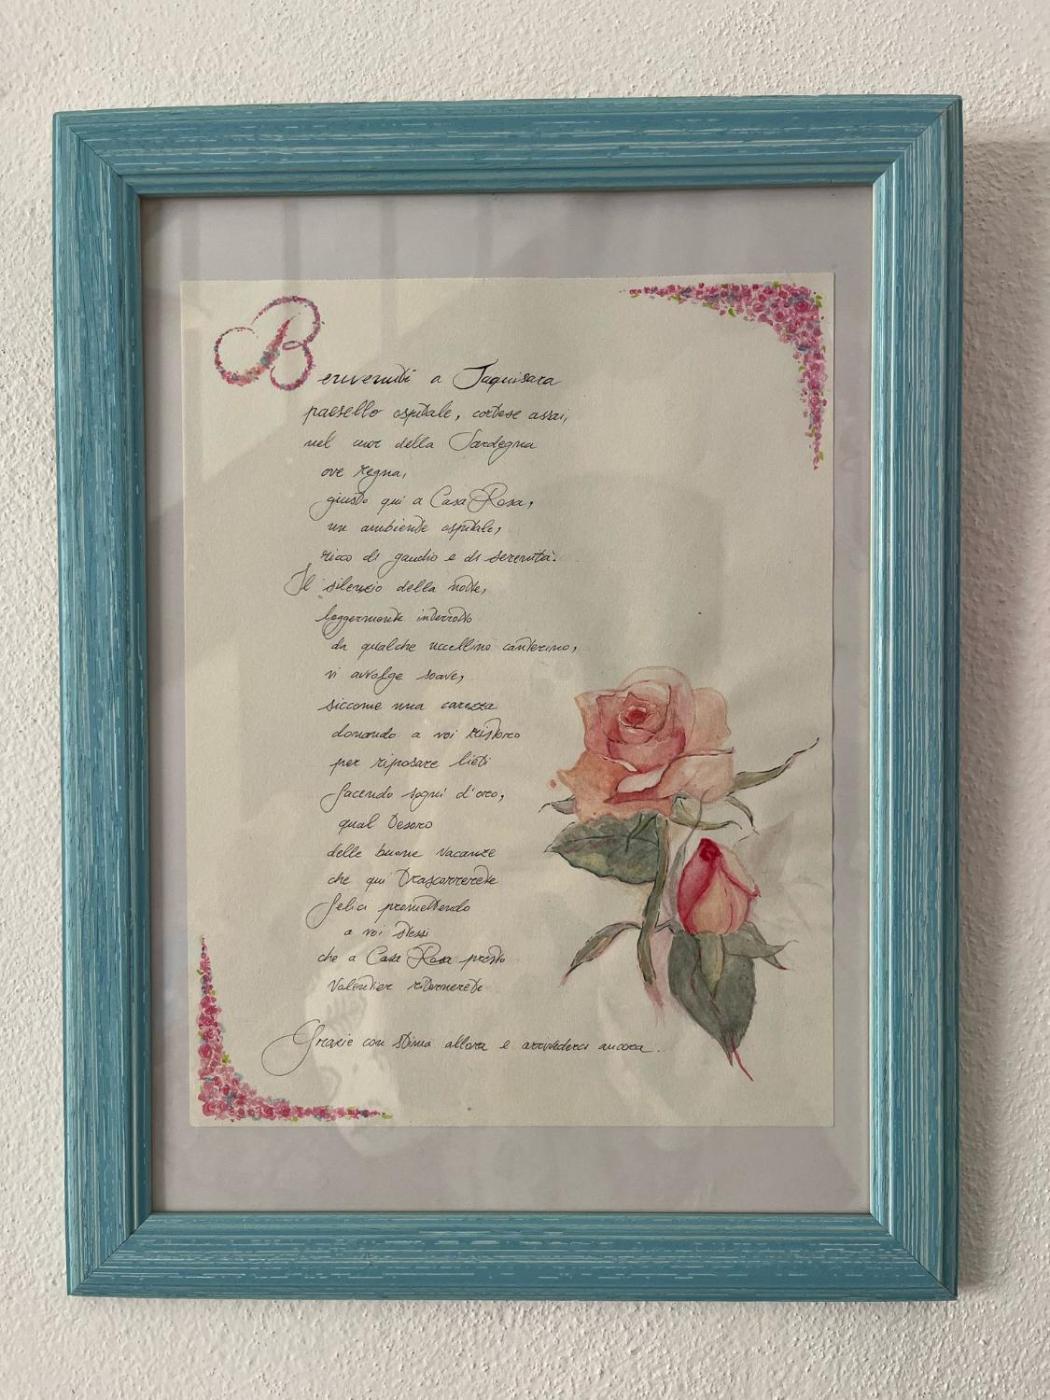 Benvenuti a Taquisara
paesello ospitale, cortese assai,
nel cuor della Sardegna
ove regna,
giusto qui a Casa Rosa,
un ambiente ospitale,
ricco di gaudio e di serenità.
Il silenzio della notte,
leggermente interrotto
da qualche uccellino canterino,
vi avvolge soave,
siccome una carezza
donando a voi ristoro
per riposare lieti
facendo sogni d'oro,
qual tesoro
delle buone vacanze
che qui trascorrerete
felici promettendo
a voi stessi
che a Casa Rosa presto
Valentier ritornerete
Grazie con stima allora e arrivederci ancora.